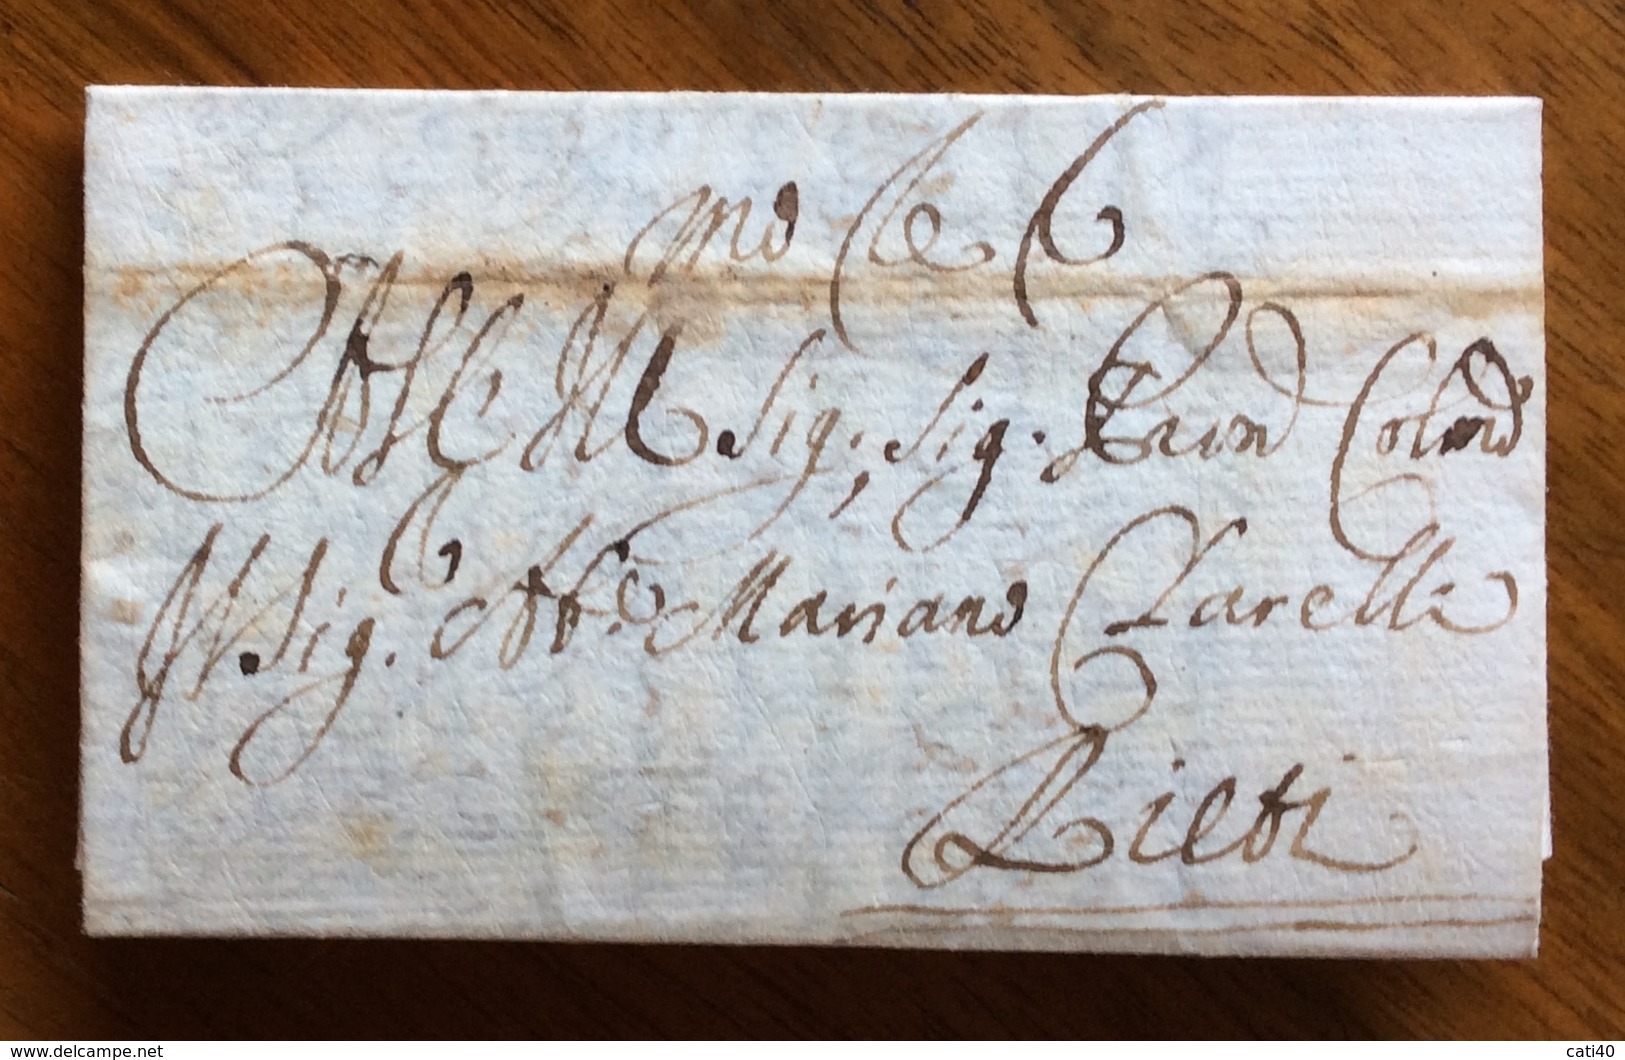 All Ill mo Sig, Sig. Pron Col mo
Il Sig. Ab.e Mariano Clarelli
Rieti
delcampe.net
cati40